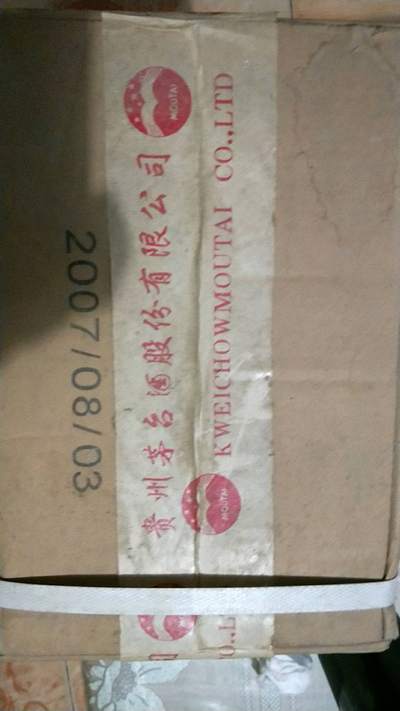 MOUTAI
贵州茅台酒股份有限公司
KWEICHOWMOUTAI CO.,LTD
MOUTAI
2007/08/03
O.,L